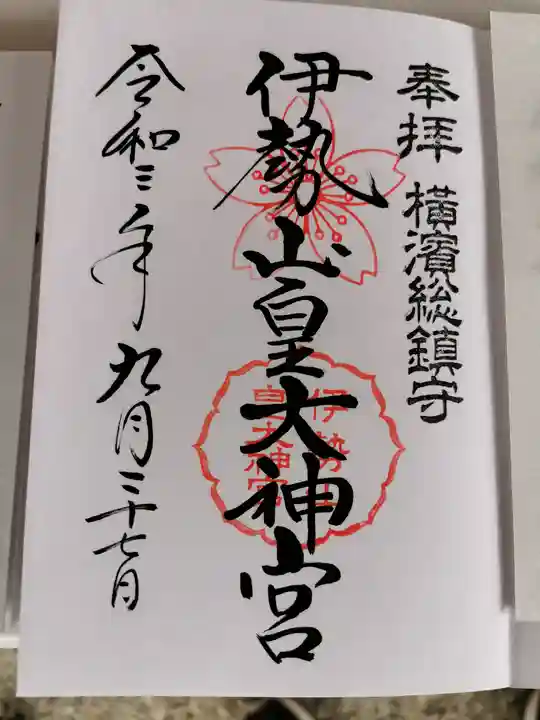 奉拝 横濱総鎮守
伊勢山皇大神宮
伊勢山
皇大神宮
令和三年九月二十七日